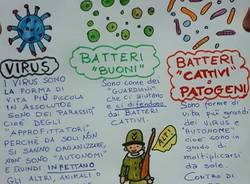 VIRUS
I VIRUS SONO
LA FORMA DI
VITA PIÙ PICCOLA
IN ASSOLUTO E
SONO DEI "PARASSITI"
CIOÈ DEGLI
"APPROFITTATORI"
PERCHÈ DA SOLI NON
SI SANNO ORGANIZZARE,
NON SONO "AUTONOMI"
E QUINDI INFETTANO
GLI ALTRI, ANIMALI O
BATTERI
"BUONI"
Sono come dei
"GUARDIANI"
che ci aiutano
e ci difendono
dai BATTERI
CATTIVI
ALT!
BATTERI
"CATTIVI"
PATOGENI
Sono forme di
vita più grandi
dei VIRUS e
"AUTONOME"
cioè sono in
grado di
moltiplicarsi
da sole
CONTRO DI